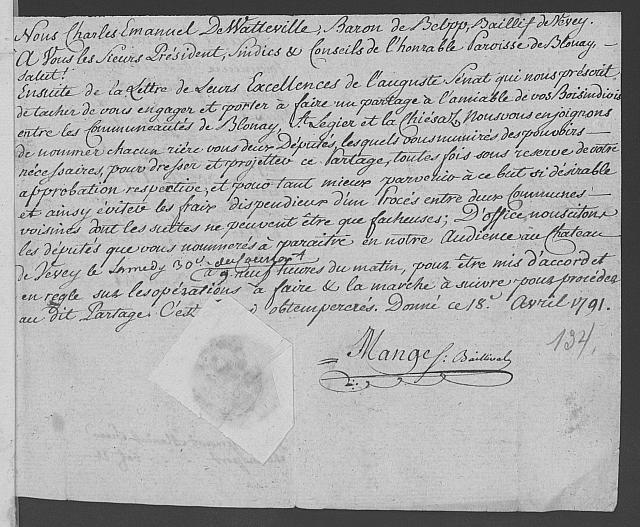 Nous Charles Emanuel DeWatteville, Baron de Belpp, Baillif de Vevey.
A Vous les Sieurs Président, Sindics & Conseils de l'honrable Paroisse de Blonay,
Salut!
Ensuite de la Lettre de Leurs Excellences de l'auguste Sénat qui nous préscrit
de tacher de vous engager et porter à faire un partage à l'amiable de vos Bois indivis
entre les Communeautés de Blonay, St. Legier et la Chiésaz, Nous vous enjoignons
de nommer chacun rière vous deux Députés, lesquels vous munirés des pouvoirs
nécessaires, pour dresser et projetter ce Partage, toutes fois sous reserve de votre
approbation respective, et pour tant mieux parvenir à ce but si désirable
et ainsy éviter les fraix dispendieux d'un Procès entre deux Communes
voisines dont les suittes ne peuvent être que facheuses; D'office nous citons
les députés que vous nommerés à paraitre en notre Audience au Chateau
de Vevey le Samedy 30e
à 9. neuf heures du matin, pour être mis d'accord et
en regle sur les opérations à faire & la marche à suivre pour procéder
au dit Partage. C'est obtempererés. Donné ce 18e. Avril 1791.
Mange S: Baillival
134.